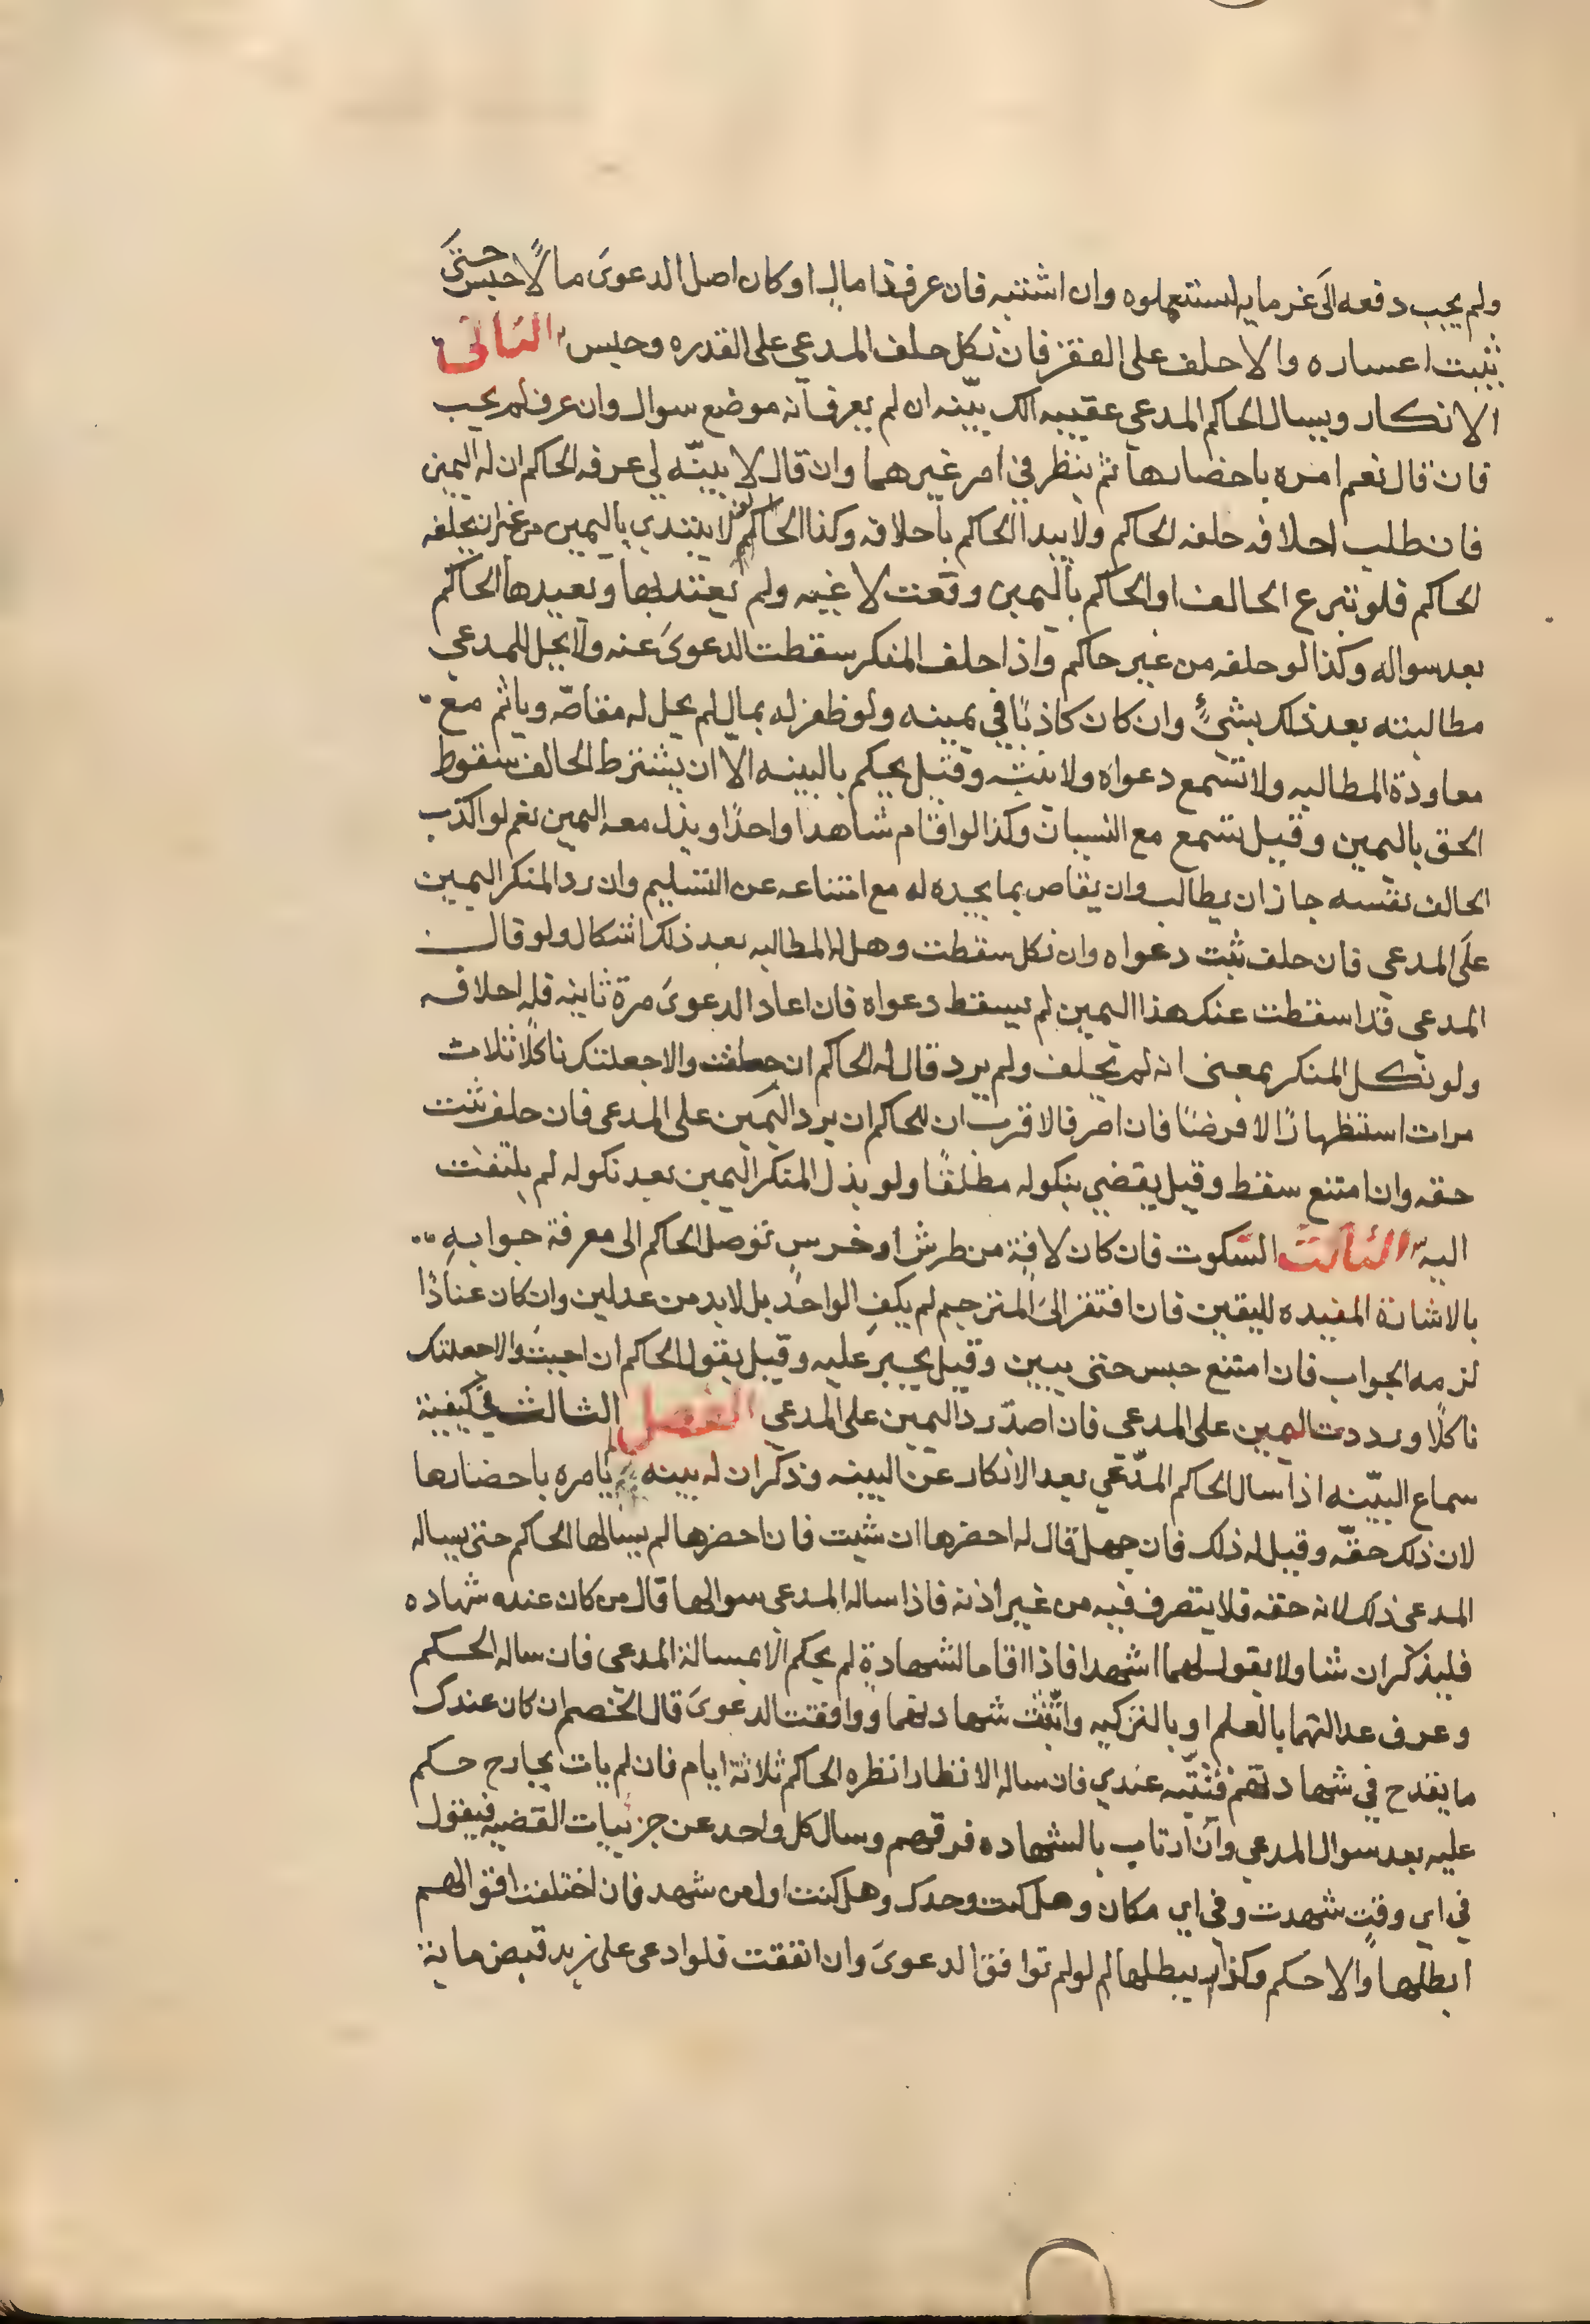 ولم يجب دفعه الى غرمايه ليستعملوه وان اشتبه فان عرف ذا مال او كان اصل الدعوى مالا حبس حتى
يثبت اعساره والا حلف على الفقر فان نكل حلف المدعي على القدره وحبس الثاني
الانكار ويسال الحاكم المدعي عقيبه الك بينه ان لم يعرف انه موضع سوال وان عرف لم يجب
فان قال نعم امره باحضارها ثم ينظر في امر غيرهما وان قال لا بينه لي عرفه الحاكم ان له اليمين
فان طلب احلافه حلفه الحاكم ولا يبدا الحاكم باحلافه وكذا الحالف لا يبتدي باليمين من غير ان يحلفه
الحاكم فلو تبرع الحالف او الحاكم باليمين وقعت لاغيه ولم يعتد بها ويعيدها الحاكم
بعد سواله وكذا لو حلفه من غير حاكم واذا حلف المنكر سقطت الدعوى عنه ولا يحل للمدعي
مطالبته بعد ذلك بشيء وان كان كاذبا في يمينه ولو ظفر له بمال لم يحل له مقاصه وياثم مع
معاودة المطالبه ولا تسمع دعواه ولا بينه وقيل يحكم بالبينه الا ان يشترط الحالف سقوط
الحق باليمين وقيل تسمع مع النسيان وكذا لو اقام شاهدا واحدا وبذل معه اليمين نعم لو اكذب
الحالف نفسه جاز ان يطالب وان يقاص بما يجده له مع امتناعه عن التسليم وان رد المنكر اليمين
على المدعي فان حلف ثبت دعواه وان نكل سقطت وهل له المطالبه بعد ذلك اشكال ولو قال
المدعي قد اسقطت عنك هذا اليمين لم يسقط دعواه فان اعاد الدعوى مرة ثانيه فله احلافه
ولو نكل المنكر بمعنى انه لم يحلف ولم يرد قال له الحاكم ان حلفت والا جعلتك ناكلا ثلاث
مرات استظهارا لا فرضا فان اصر فالاقرب ان للحاكم ان يرد اليمين على المدعي فان حلف ثبت
حقه وان امتنع سقط وقيل يقضي بنكوله مطلقا ولو بذل المنكر اليمين بعد نكوله لم يلتفت
اليه الثالث السكوت فان كان لافة من طرش او خرس توصل الحاكم الى معرفة جوابه
بالاشارة المفيده لليقين فان افتقر الى المترجم لم يكف الواحد بل لابد من عدلين وان كان عنادا
لزمه الجواب فان امتنع حبس حتى يبين وقيل يجبر عليه وقيل يقول الحاكم ان اجبت والا جعلتك
ناكلا ورددت اليمين على المدعي فان اصر رد اليمين على المدعي الفصل الثالث في كيفية
سماع البينه اذا سال الحاكم المدعي بعد الانكار عن البينه وذكر ان له بينه لم يامره باحضارها
لان ذلك حقه وقيل له ذلك فان جهل قال له احضرها ان شيت فان احضرها لم يسالها الحاكم حتى يساله
المدعي ذلك لانه حقه فلا يتصرف فيه من غير اذنه فاذا ساله المدعي سوالها قال من كان عنده شهاده
فليذكر ان شا ولا يقول لهما اشهدا فاذا اقاما الشهادة لم يحكم الا بمسالة المدعي فان ساله الحكم
وعرف عدالتهما بالعلم او بالتزكيه واتفقت شهادتهما ووافقت الدعوى قال للخصم ان كان عندك
ما يقدح في شهادتهم فبينه عندي فان ساله الانظار انظره الحاكم ثلاثة ايام فان لم يات بجارح حكم
عليه بعد سوال المدعي وان ارتاب بالشهاده فرقهم وسال كل واحد عن جزييات القضيه فيقول
في اي وقت شهدت وفي اي مكان وهل كنت وحدك وهل كنت اول من شهد فان اختلفت اقوالهم
ابطلها والا حكم وكذا يبطلها لو لم توافق الدعوى وان اتفقت فلو ادعى على زيد قبض ماية